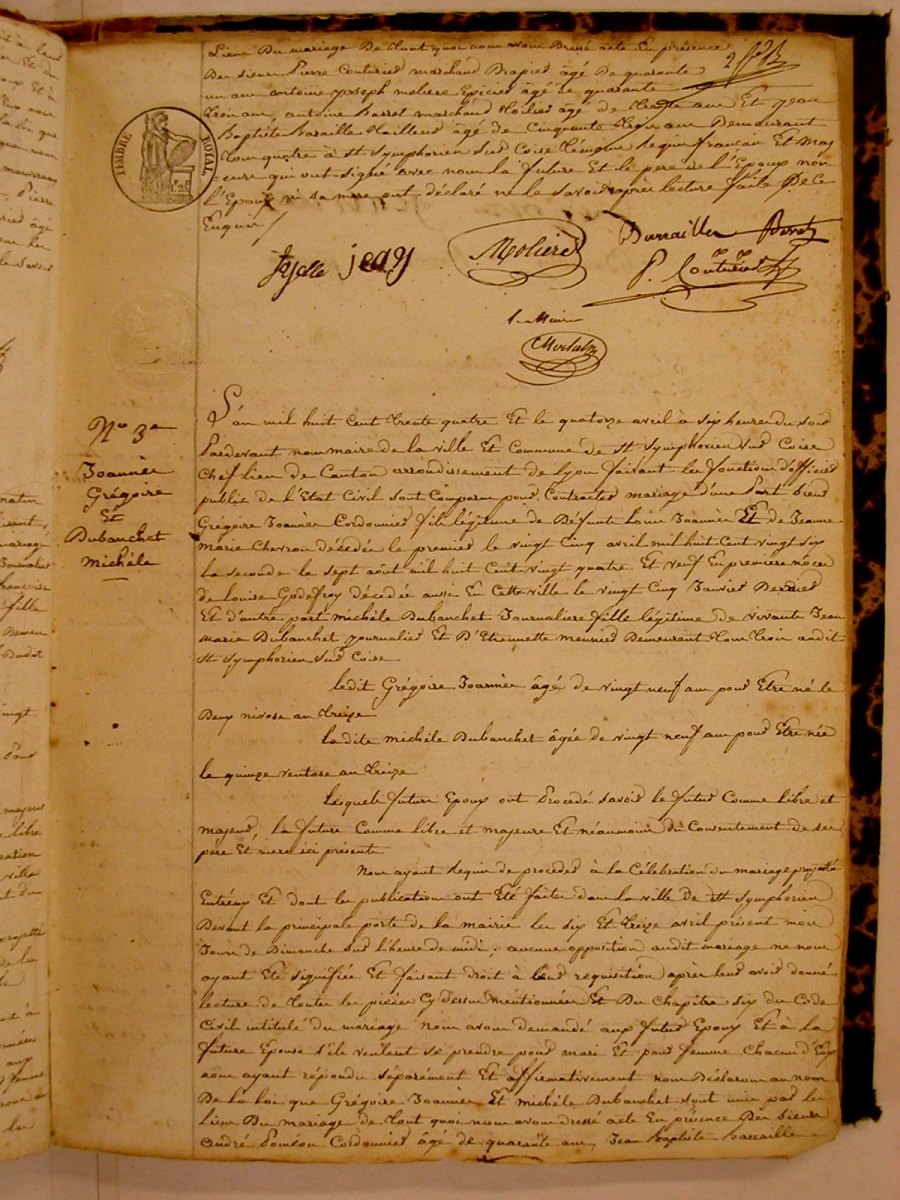 Lien Du mariage De tout quoi nous avons Dressé acte En présence
Des sieurs Pierre Couturier marchand Drapier âgé De quarante
un ans antoine Joseph moliere Epicier âgé de quarante
trois ans, antoine Barret marchand toilier âgé de trente ans Et jean
Baptiste Barraille tailleur âgé de Cinquante trois ans Demeurant
tous quatre à St Symphorien Sur Coise témoins Requis français Et Maj
eurs qui ont signé avec nous la future Et le pere de l'Epoux non
l'Epoux ni sa mere ont déclaré ne le savoir après lecture faite De ce
Enquis
TIMBRE ROYAL
jeay
Moliere
Barrailler
Barret
P. Couturier
le Maire
No 3
Joannès
Grégoire
Et
Dubanchet
Michèle
L'an mil huit Cent trente quatre Et le quatorze avril à six heures du soir
Pardevant nous maire de la ville Et Commune de St Symphorien Sur Coise
Chef lieu de Canton arrondissement de Lyon faisant les fonctions d'officier
public de l'Etat Civil sont Comparus pour Contracter mariage d'une Part Sieur
Grégoire Joannès Cordonnier fils légitime de Défunts Louis Joannès Et de Jeanne
Marie Chevron décédés le premier le vingt Cinq avril mil huit cent vingt six
la seconde le sept août mil huit Cent vingt quatre Et veuf En premiere nôces
de Louise Godefroy décédée aussi En Cette ville le vingt Cinq Janvier Dernier
Et d'autre part michèle Dubanchet Journaliere fille légitime de vivants Jean
Marie Dubanchet journalier Et D'Etiennette meunier Demeurant tous trois audit
St Symphorien Sur Coise
ledit Grégoire Joannès âgé de vingt neuf ans pour Etre né le
Deux nivose an treize
ladite michèle Dubanchet âgée de vingt neuf ans pour Etre née
le quinze ventose an treize
Lesquels futurs Epoux ont Procédé savoir le futur Comme libre et
majeur, la future Comme libre et majeure Et néanmoins du Consentement de ses
pere Et mere ici présents
Nous ayant Requis de proceder à la Célébration du mariage projetté
Entr'eux Et dont les publications ont Eté faites dans la ville De St Symphorien
Devant la principale porte de la mairie les six Et treize avril présent mois
Jours de Dimanche sur l'heure de midi, aucune opposition audit mariage ne nous
ayant Eté signifiée Et faisant Droit à leur requisition après leur avoir donné
lecture de toutes les pièces Cy dessus mentionnées Et Du Chapitre six du Code
Civil intitulé du mariage nous avons demandé aux futur Epoux Et à la
future Epouse s'ils veulent se prendre pour mari Et pour femme Chacun d'Eux
nous ayant répondu séparément Et affirmativement nous Déclarons au nom
De la loi que Grégoire Joannès Et michèle Dubanchet sont unis par les
liens Du mariage de tout quoi nous avons dressé acte En présence Des Sieurs
André Cordonnier âgé de quarante ans, Jean Baptiste Barraille